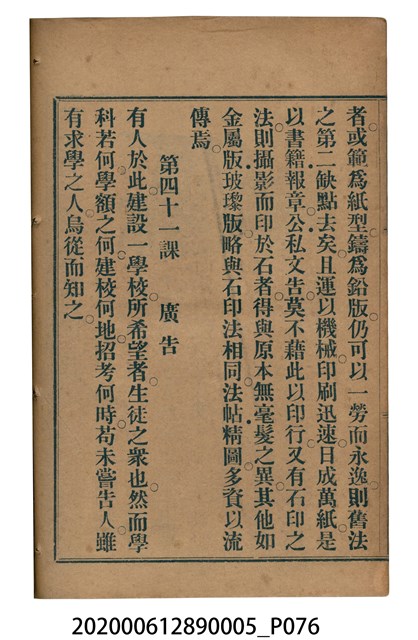 者或範爲紙型鑄爲鉛版仍可以一勞而永逸則舊法
之第二缺點去矣且運以機械印刷迅速日成萬紙是
以書籍報章公私文告莫不藉此以印行又有石印之
法則攝影而印於石者得與原本無毫髮之異其他如
金屬版玻瓈版略與石印法相同法帖精圖多資以流
傳焉
第四十一課 廣告
有人於此建設一學校所希望者生徒之衆也然而學
科若何學額之何建校何地招考何時苟未嘗告人雖
有求學之人烏從而知之
202000612890005_P076